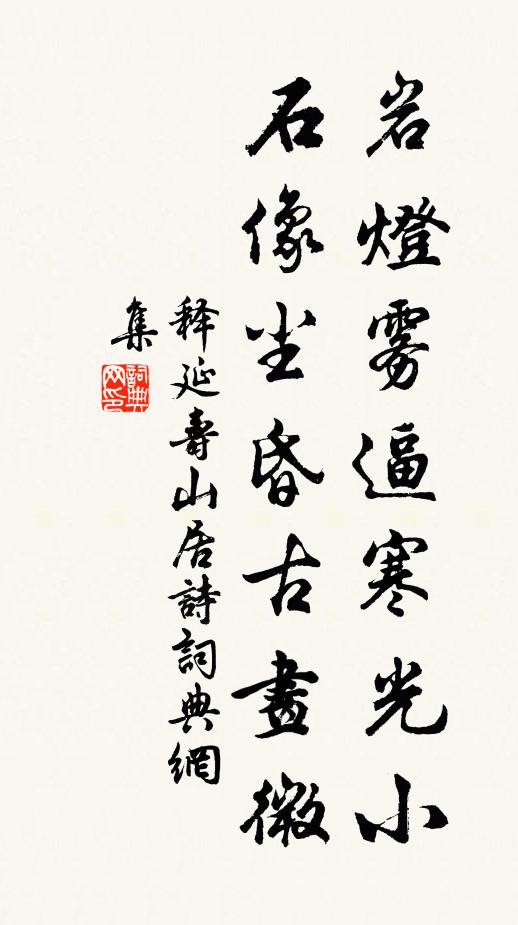 岩燈雾逼寒光小
石像尘昏古畫微
释延壽山居詩詞典網
集
詞典网印